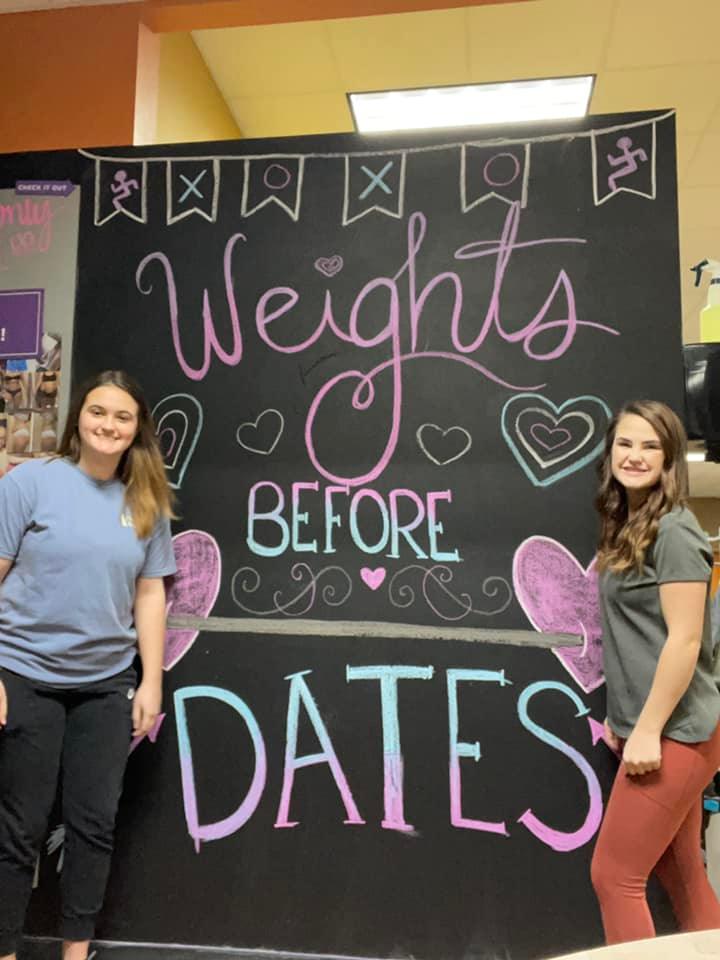 CHECK IT OUT
X O X O
Weights
BEFORE
DATES
!